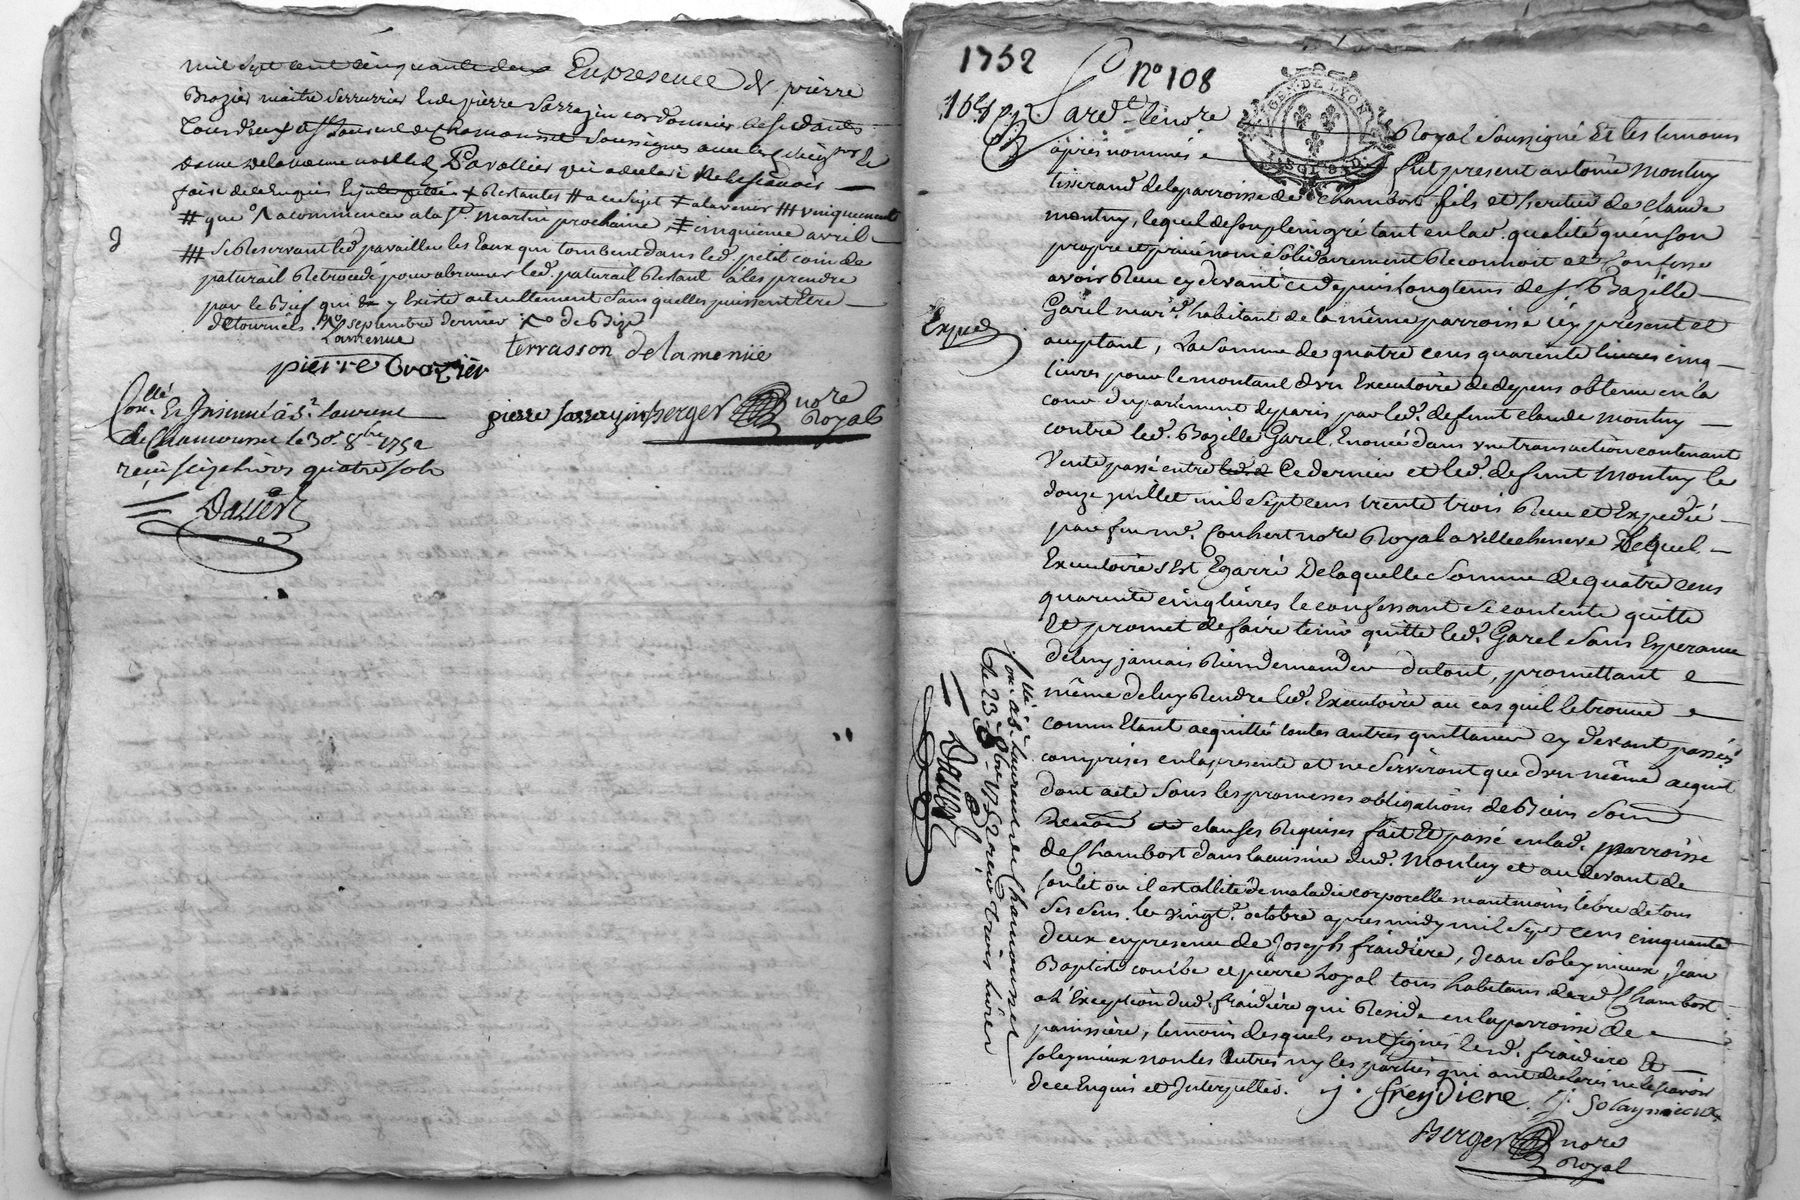 mil sept cent cinquante deux En presence de pierre
Brozier maitre serrurier et de pierre Sarrazin cordonnier residants
tous deux a St Laurent de Chamousset soussignés avec led.
dame Delamenue non led. Pavallier qui a declaré ne le scavoir
faire de ce enquis # Restantes # a ce sujet # a lavenir ### uniquement
# que a commencer a la St martin prochaine, # cinquieme avril
### Se Reservant led. pavaillier les Eaux qui tombent dans led. petit coin de
paturail Retrocedé pour abreuver led. paturail Restant a les prendre
par le Bief qui y Existe actuellement sans quelles puissent Etre
detournées. septembre dernier de Bize
Lamenue
terrasson delamenüe
pierre Brozier
pierre sarrazin Berger nore
Royal
Collé
Con. Et Insinué à St. Laurent
de Chamousset le 30e 8bre 1752
reçu seize livres quatre sols
Dauier
1752
No 108
Pardt. le nore
Royal soussigné Et les temoins
GEN. DE LYON
après nommés
fut present antoine montuy
tisserand de la parroisse de Chambost fils et heritier de claude
montuy, lequel de son plein gré tant en lad. qualité qu'en son
propre et privé nom solidairement Reconnoit et Confesse
avoir Reçu cy devant et depuis longtems de s. Bazille
Expédié
Garel mard. habitant de la même parroisse icy présent et
acceptant, La somme de quatre cens quarente livres cinq
livres pour le montant d'un Executoire de depens obtenu en la
cour du parlement de paris par led. defunt claude montuy
contre led. Bazille Garel, Enoncé dans une transaction contenant
Vente passé entre led. ce dernier et led. defunt montuy le
douze juillet mil sept cens trente trois Reçu et Expedié
par feu me. Couhert nore Royal a Villecheneve Lequel
Executoire s'est Egarré De laquelle somme de quatre cens
quarente cinq livres le confessant se contente quitte
Et promet de faire tenir quitte led. Garel sans Esperance
de luy jamais Rien demander du tout, promettant
même de luy Rendre led. Executoire au cas qu'il le trouve
comme Etant acquitté toutes autres quittances cy devant passées
comprises en la presente et ne serviront que d'un même acquit
dont acte sous les promesses obligations de Biens soum
Renon et clauses Requises fait Et passé en lad. parroisse
de Chambost dans la cuisine dud. Montuy et au devant de
son lit ou il est allité de maladie corporelle neantmoins libre de tous
ses sens. le vingt octobre apres midy mil sept cens cinquante
deux en presence de Joseph fraidière, Jean Soleymieux, Jean
Baptiste combe et pierre Loyal tous habitans dud. Chambost
a l'Exception dud. fraidière qui Reside en la parroisse de
panissière, temoins desquels ont signés led. fraidiere Et
soleymieux non les autres ny les parties qui ont declarés ne le scavoir
de ce Enquis et Interpellés. j. freydiere. j. Solaymieux
Berger nore
Royal
Collé
Con. à St. Laurent de Chamousset
le 23 8bre 1752 reçu trois livres
Dauier